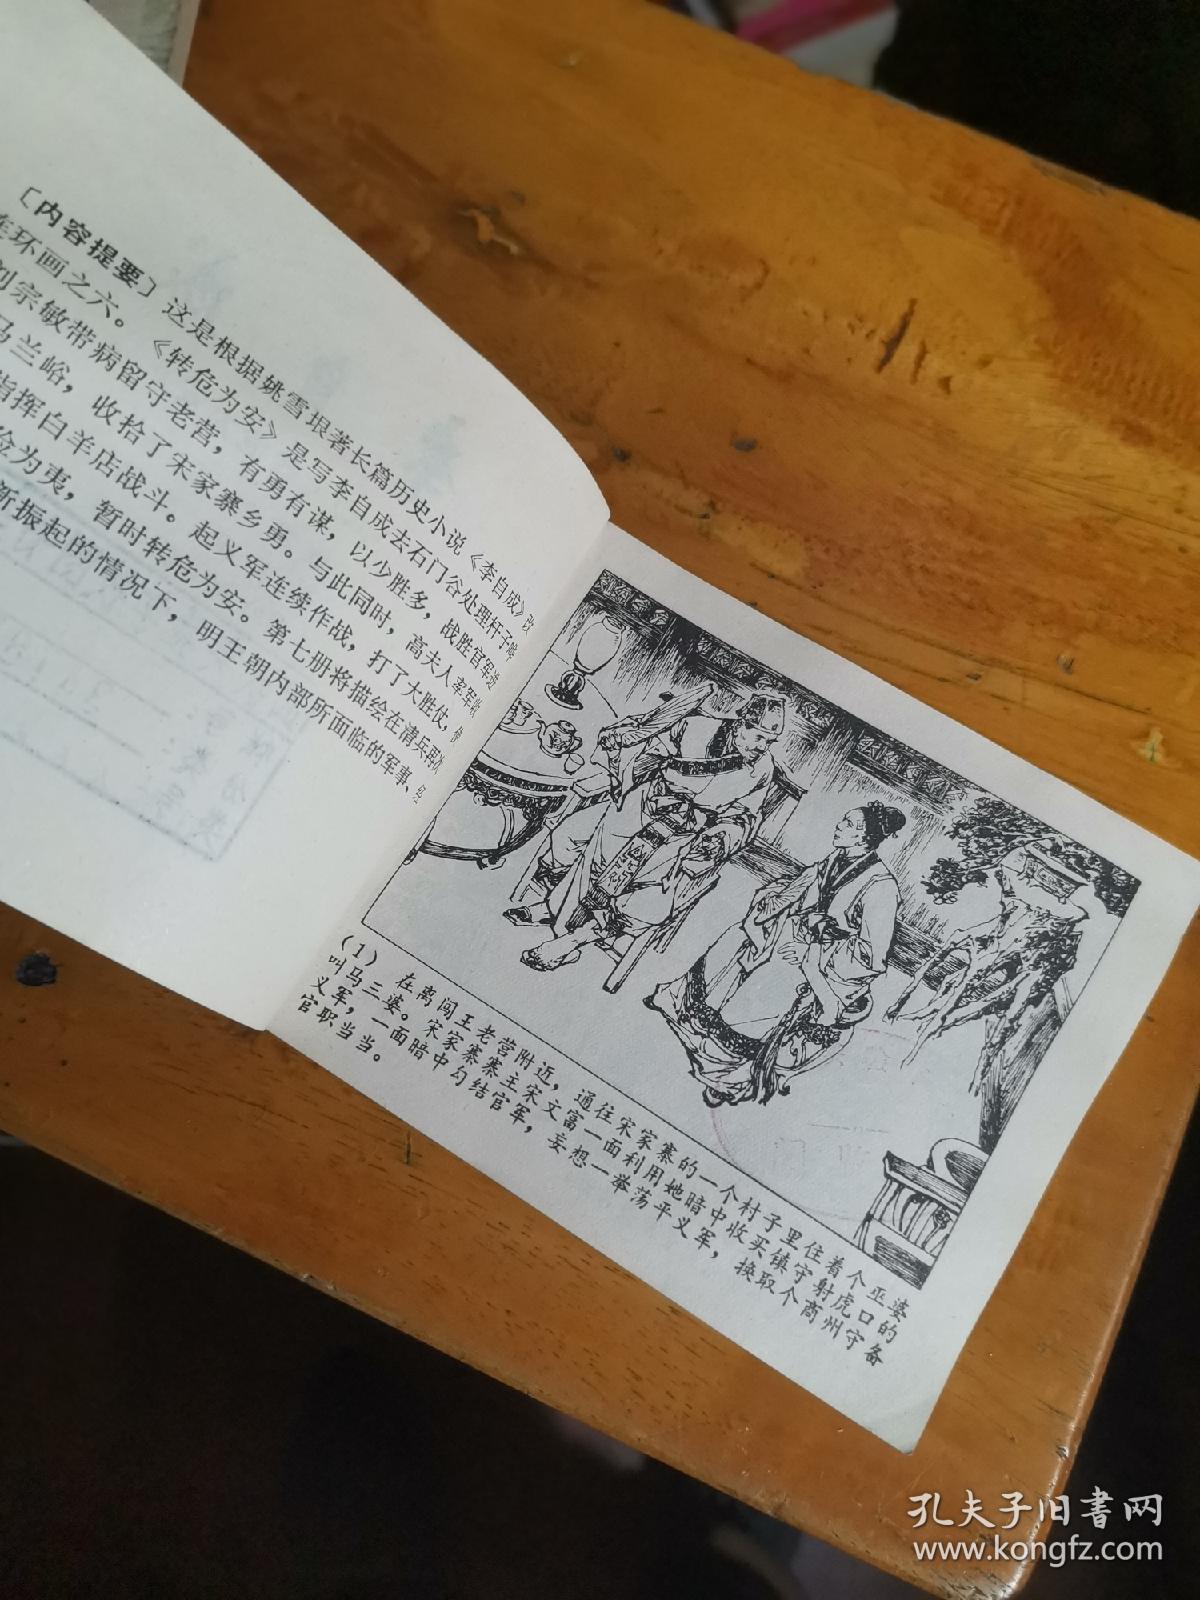 〔内容提要〕 这是根据姚雪垠著长篇历史小说《李自成》改
连环画之六。《转危为安》是写李自成去石门谷处理杆子
刘宗敏带病留守老营，有勇有谋，以少胜多，战胜官军
马兰峪，收拾了宋家寨乡勇。与此同时，高夫人率军
指挥白羊店战斗。起义军连续作战，打了大胜仗，
险为夷，暂时转危为安。第七册将描绘在清兵
新振起的情况下，明王朝内部所面临的军事、
(1) 在离闯王老营附近，通往宋家寨的一个村子里住着个巫婆
叫马三婆。宋家寨寨主宋文富一面利用她暗中收买镇守射虎口的
义军，一面暗中勾结官军，妄想一举荡平义军，换取个商州守备
官职当当。
孔夫子旧书网
www.kongfz.com